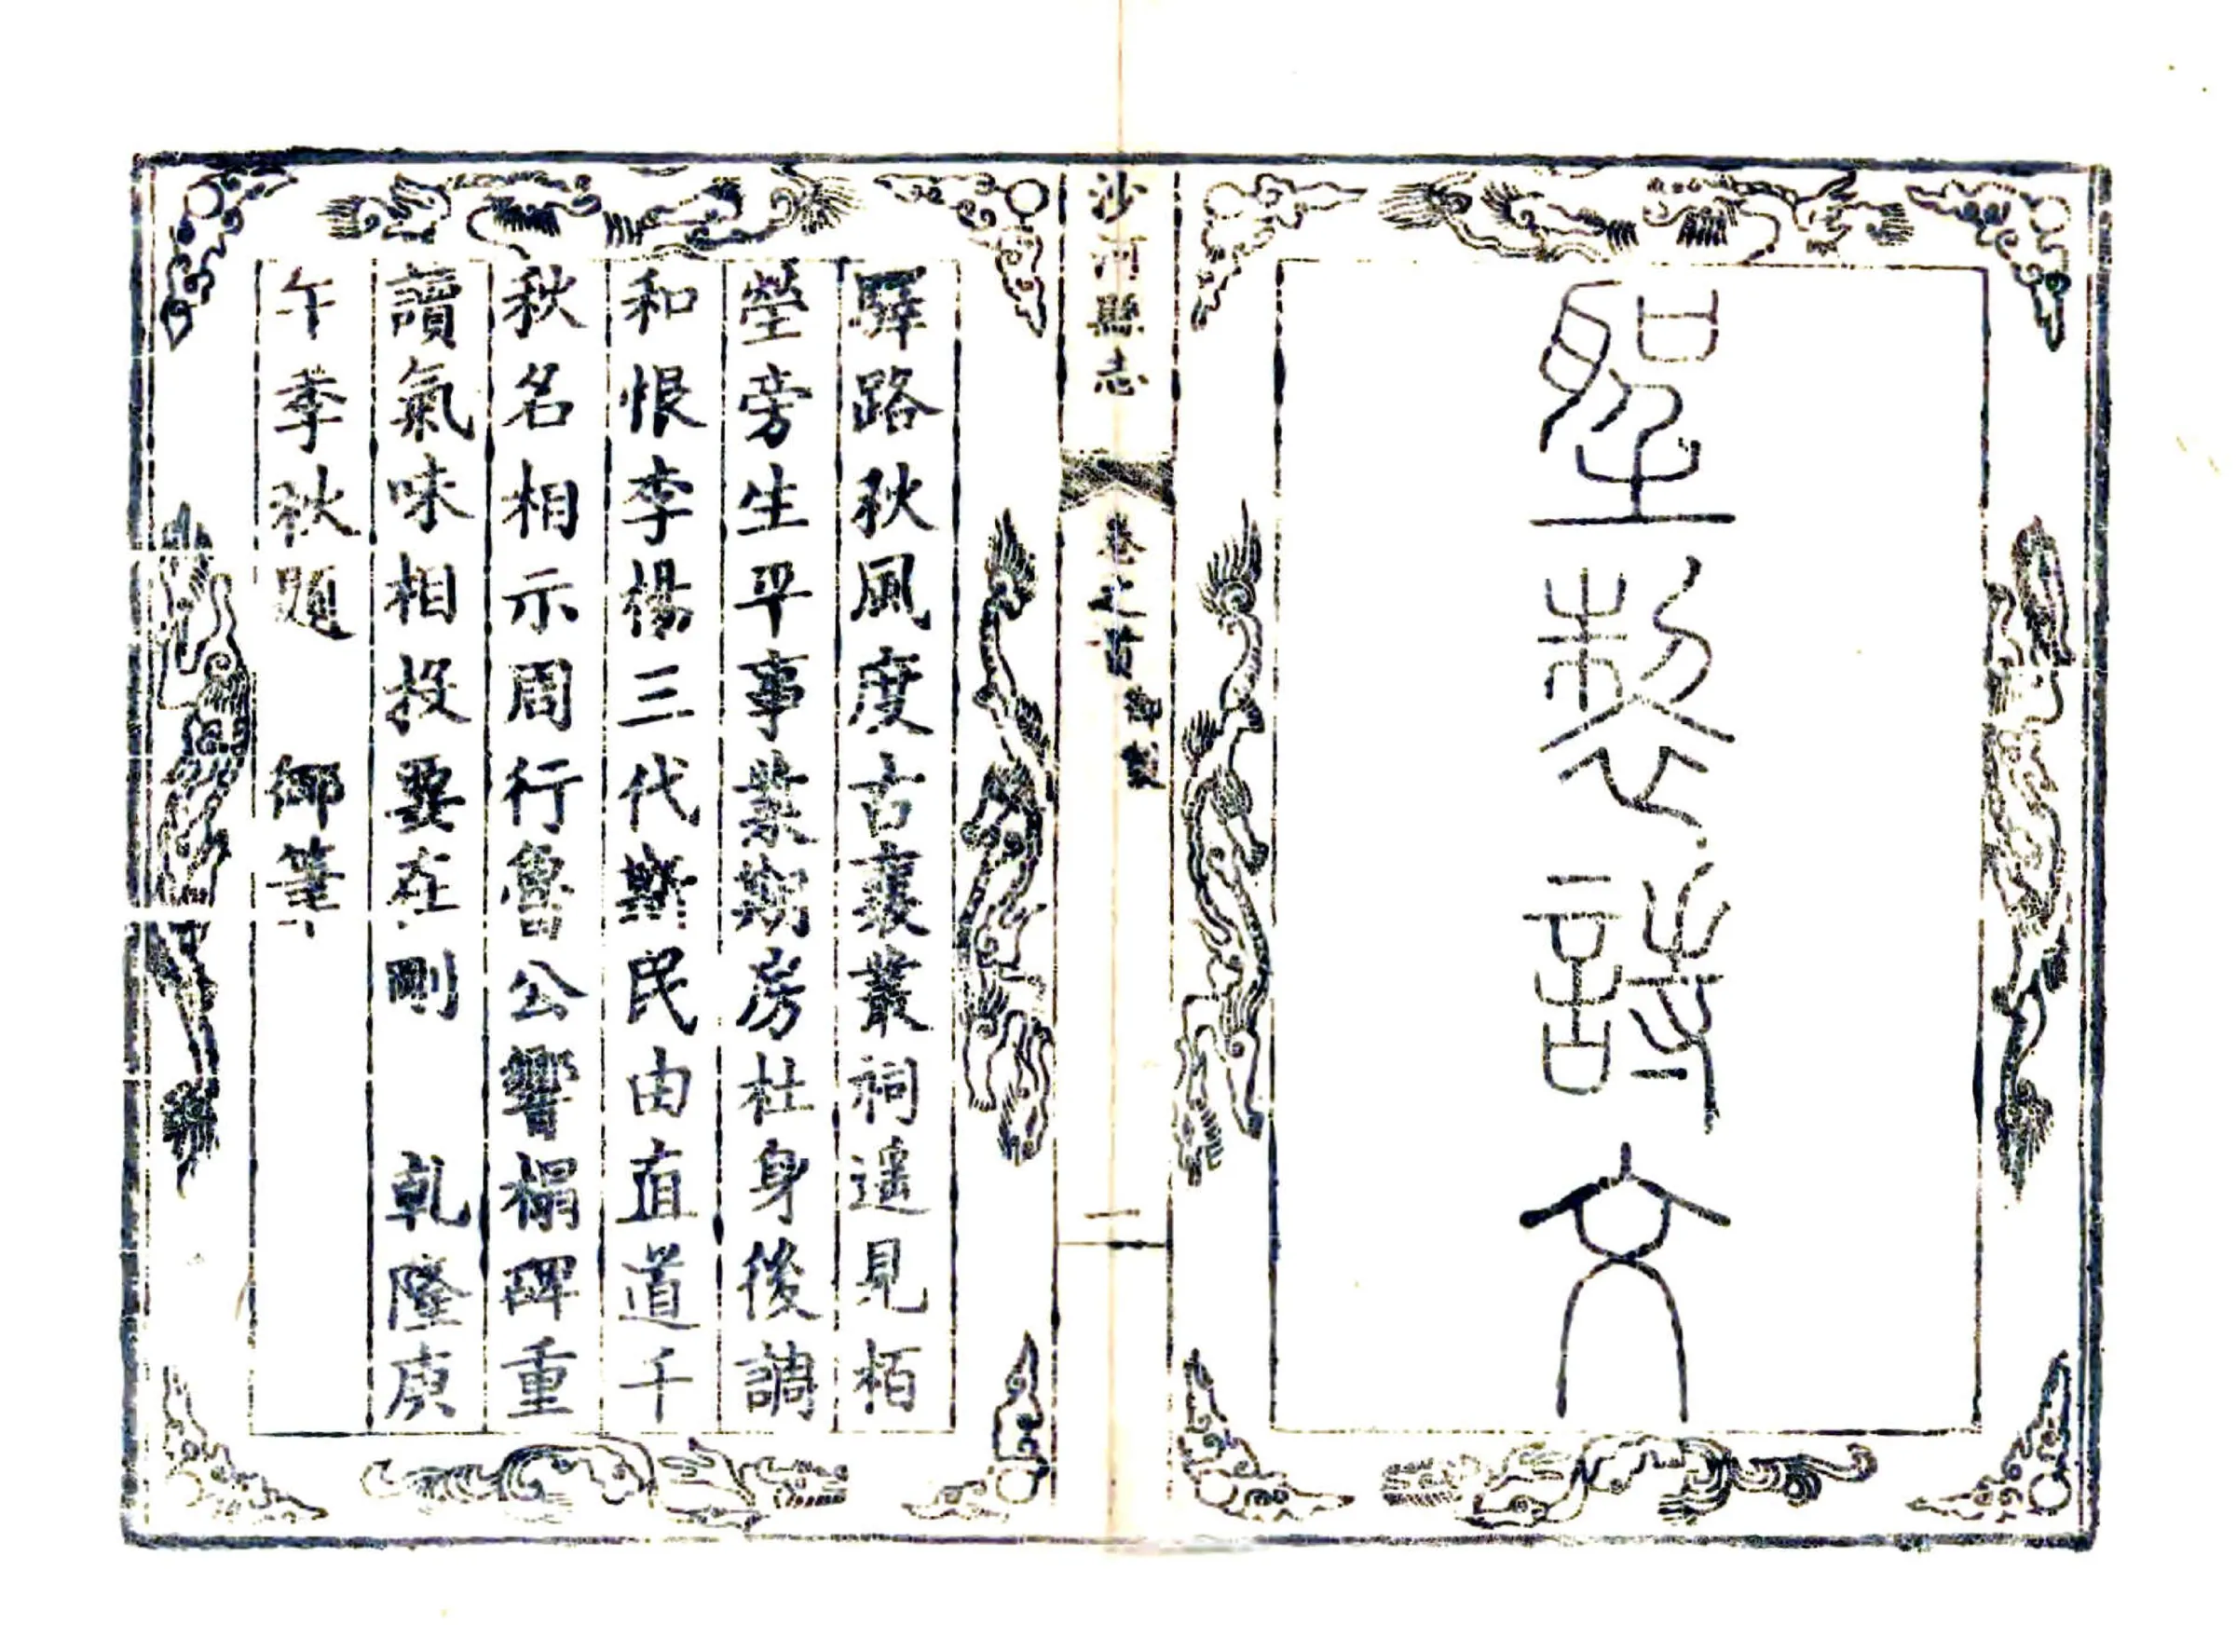 聖製詩文
沙河縣志
卷之首
御製
一
驛路秋風度古襄叢祠遥見栢
塋旁生平事業期房杜身後調
和恨李楊三代斯民由直道千
秋名相示周行魯公響榻碑重
讀氣味相投要在剛 乾隆庚
午季秋題 御筆